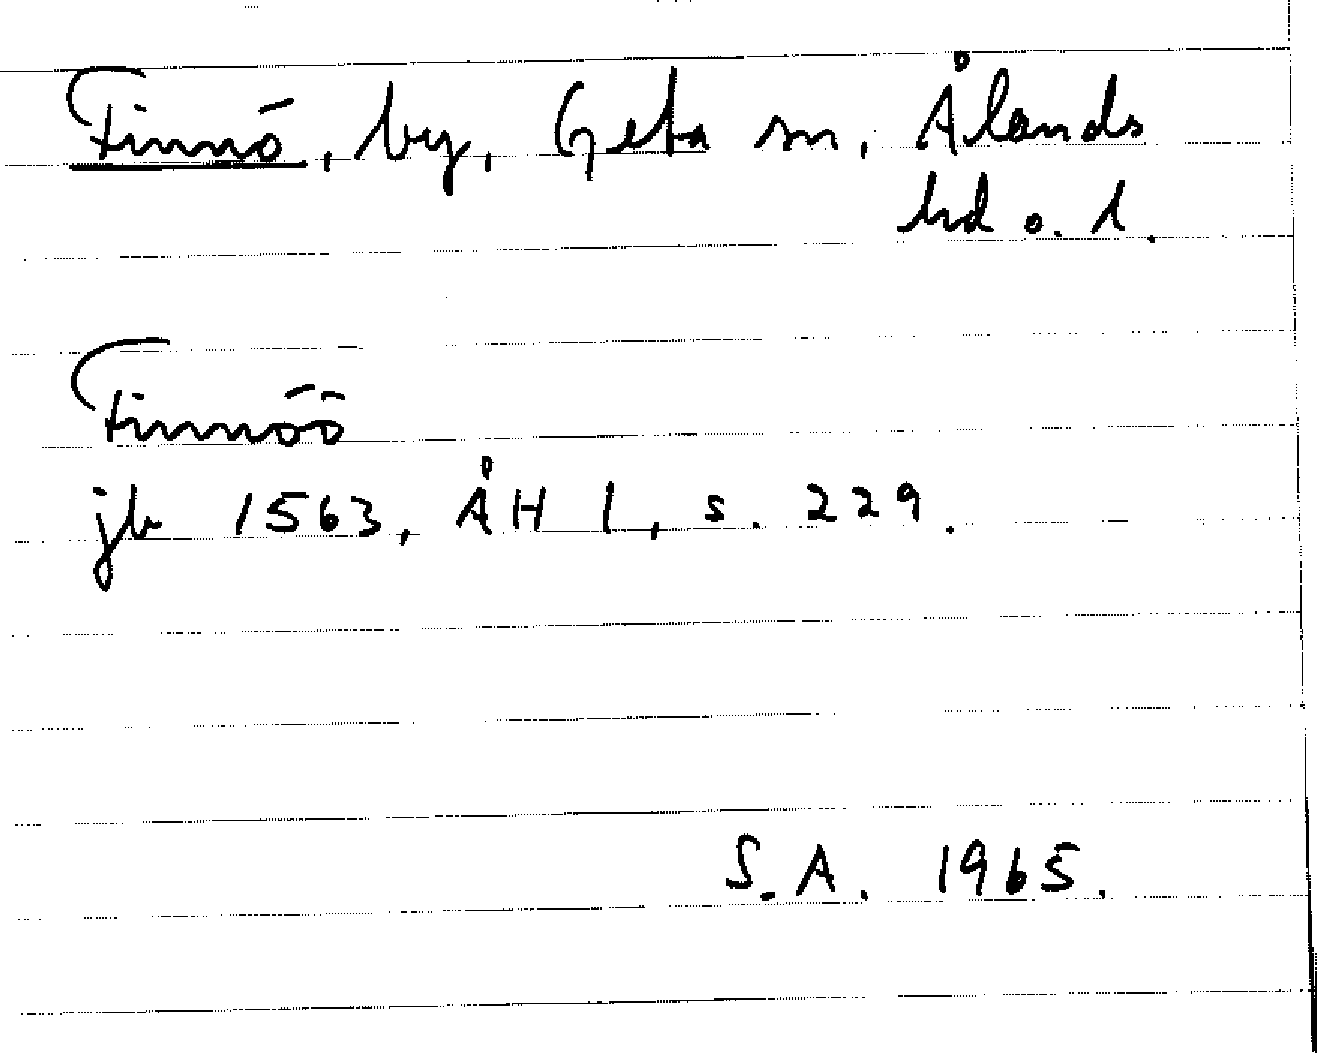 Finnö, by, Geta sn, Ålands
hd o. l.
Finnöö
jb 1563, ÅH 1, s. 229.
S.A. 1965.